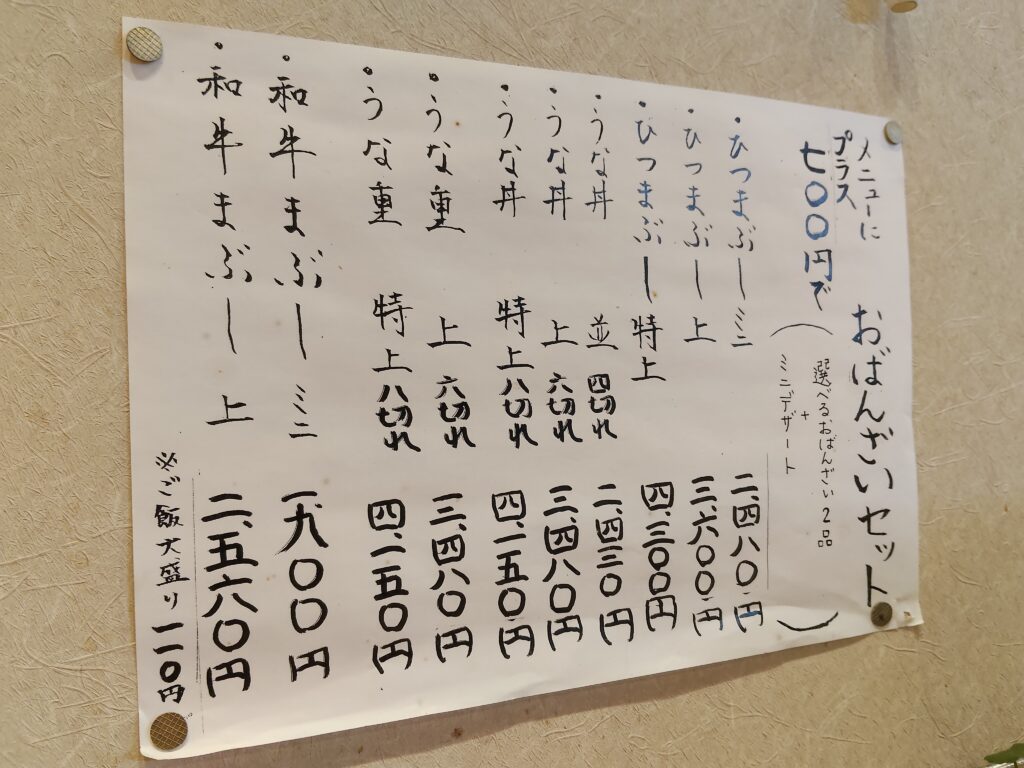 メニューに
プラス
七〇〇円で
おばんざいセット
(選べるおばんざい2品
+
ミニデザート)
・ひつまぶしーミニ 二、四八〇円
・ひつまぶしー上 三、六〇〇円
・ひつまぶしー特上 四、三〇〇円
・うな丼 並 四切れ 二、四三〇円
・うな丼 上 六切れ 三、四八〇円
・うな丼 特上 八切れ 四、一五〇円
・うな重 上 六切れ 三、四八〇円
・うな重 特上 八切れ 四、一五〇円
・和牛まぶしーミニ 一九〇〇円
・和牛まぶしー上 二、五六〇円
※ご飯大盛り 一一〇円